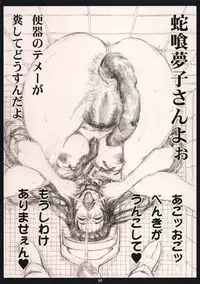 蛇喰夢子さんよぉ
便器のテメーが
糞してどうすんだよ
あこッおこッ
べんきが
うんこして♥
もうしわけ
ありませぇん♥